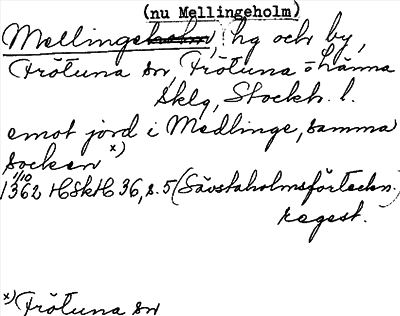 (nu Mellingeholm)
Mellingeholm, hg och by,
Frötuna sn, Frötuna o Länna
Sklg, Stockh. l.
emot jord i Medlinge, samma
socken x)
1/10
1362 HSkH 36, s. 5 (Sävstaholmsförteckn.)
regest.
x) Frötuna sn